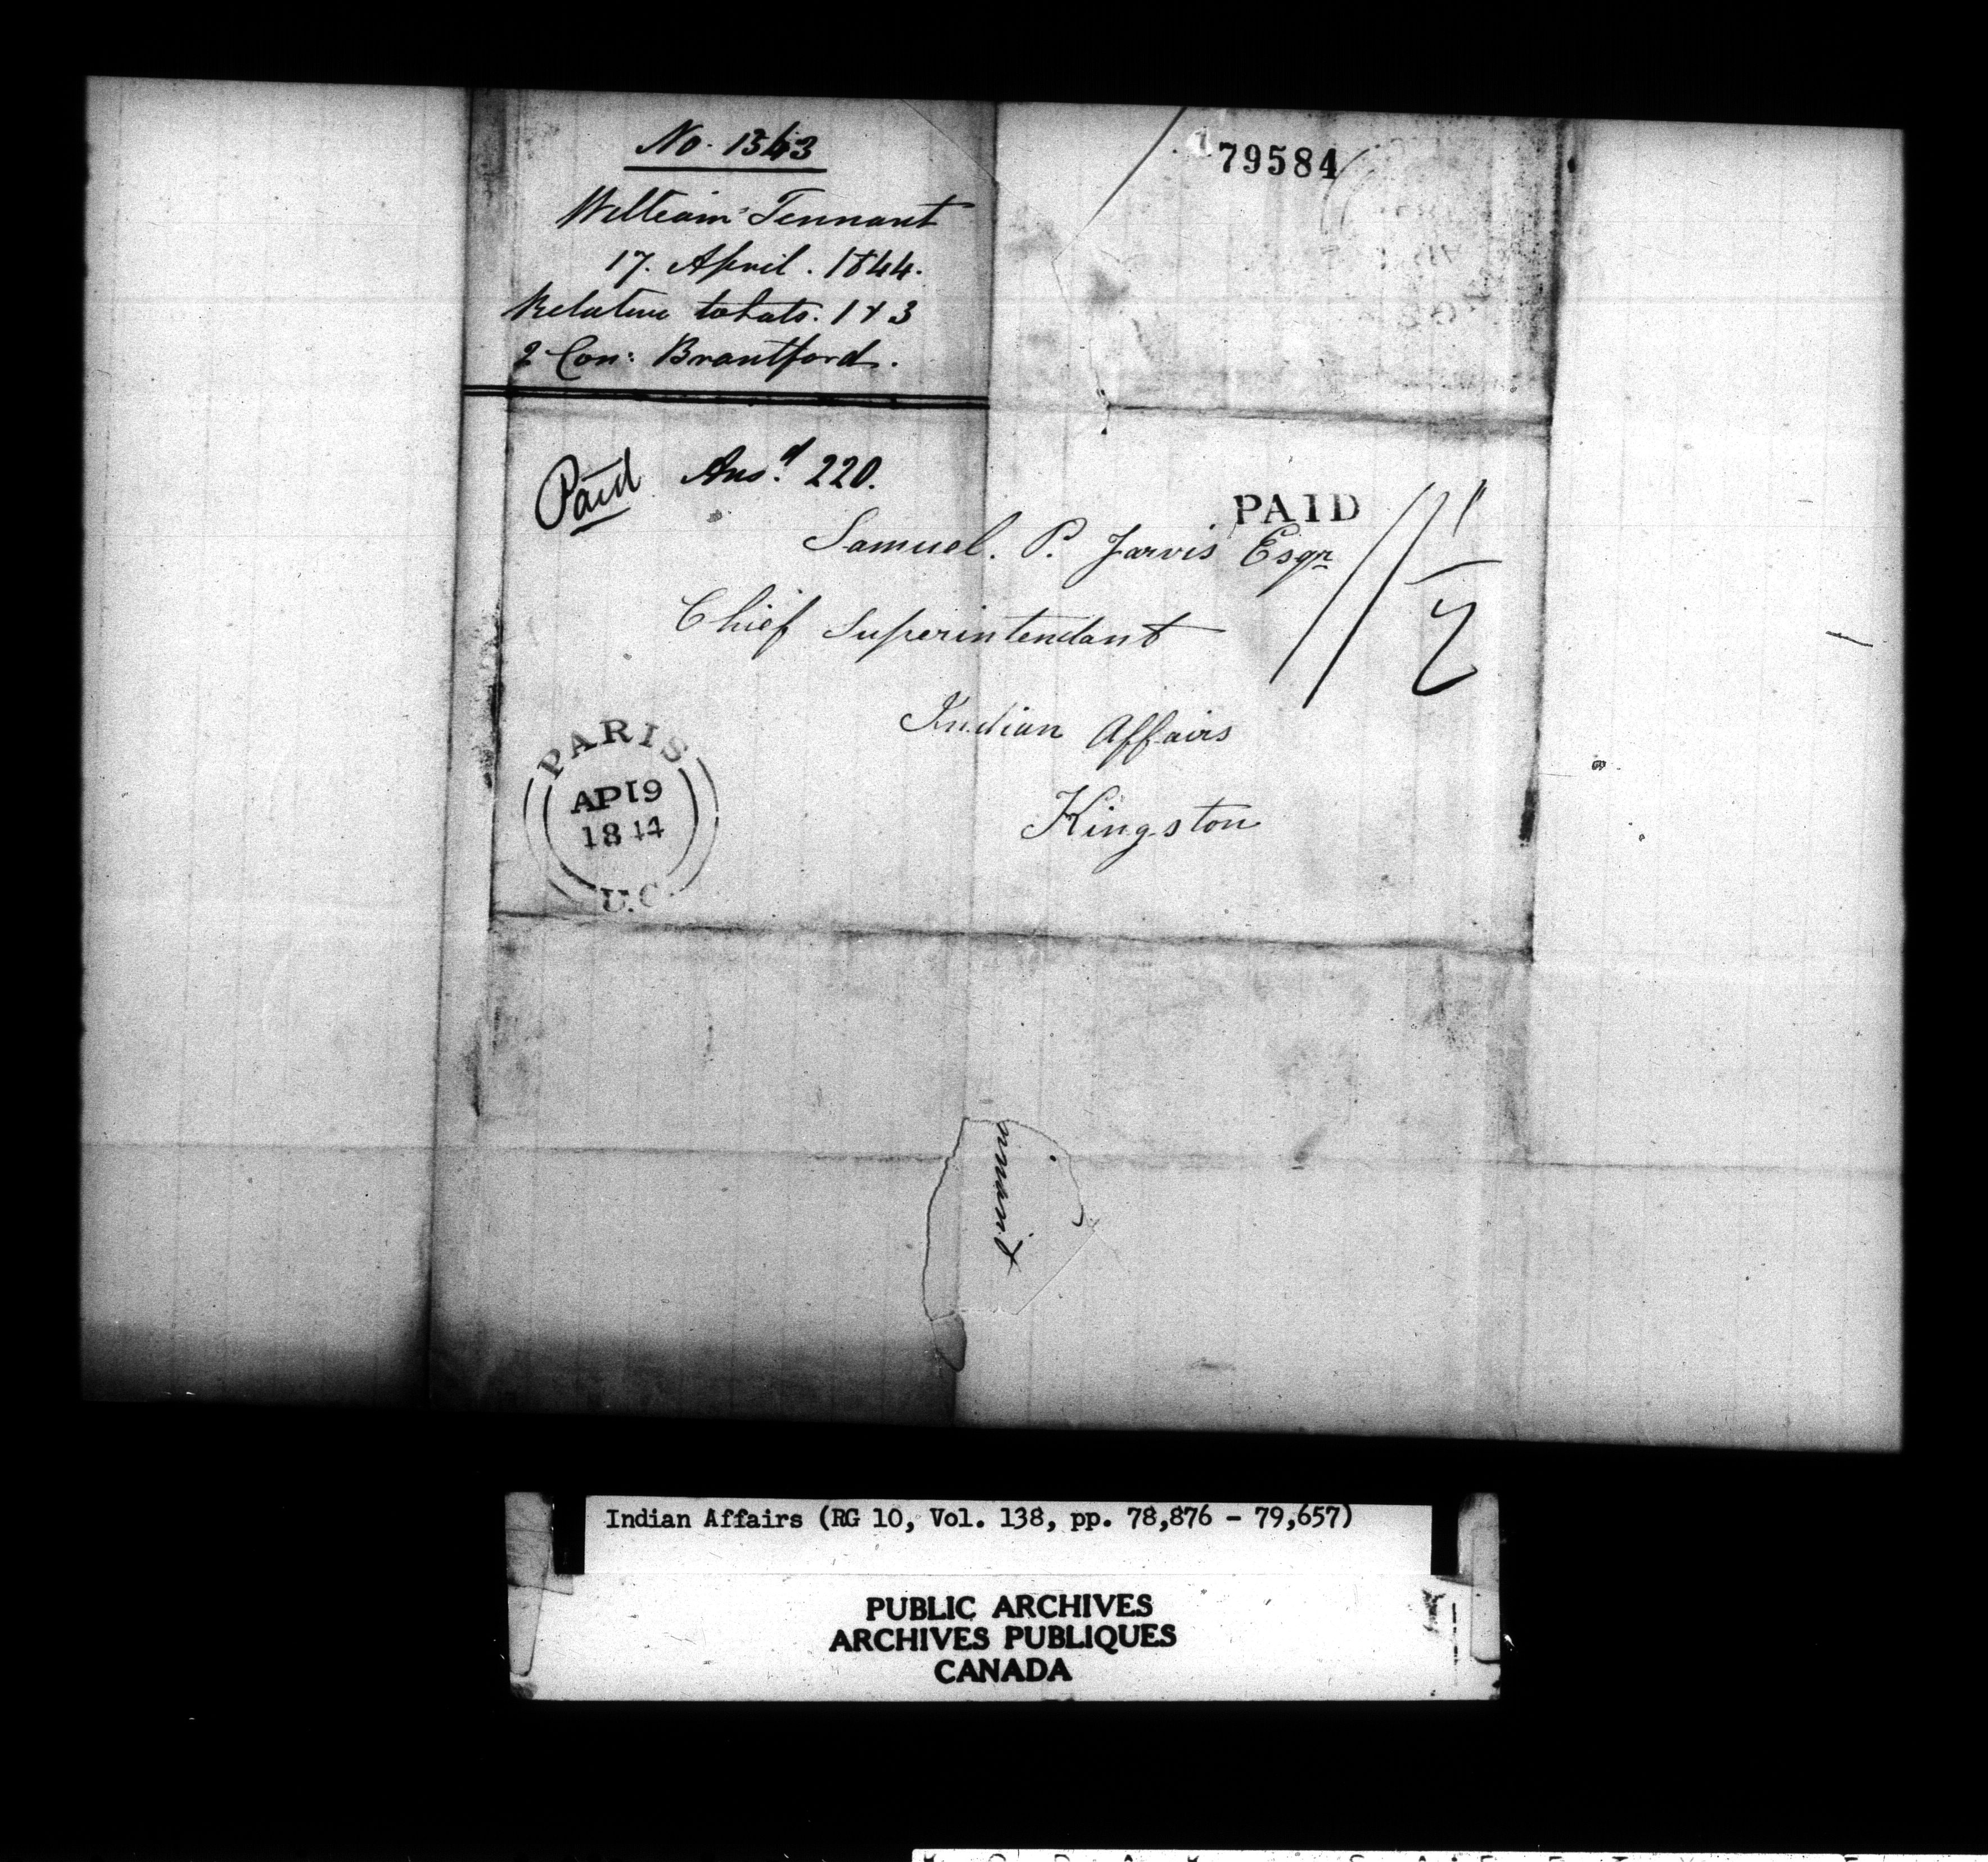 No. 1543
William Tennant
17. April. 1844.
Relative to Lots. 1 & 3
2 Con: Brantford.
79584
Paid
Ansd 220.
PAID
Samuel. P. Jarvis Esqr
Chief Superintendant
Indian Affairs
Kingston
PARIS
AP 19
1844
U.C.
Indian Affairs (RG 10, Vol. 138, pp. 78,876 - 79,657)
PUBLIC ARCHIVES
ARCHIVES PUBLIQUES
CANADA